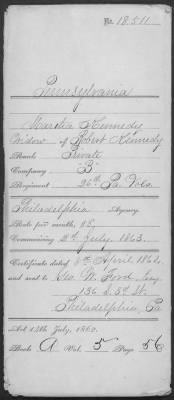 No. 18.511
Pennsylvania
Martha Kennedy
Widow of Robert Kennedy
Rank Private
Company "B"
Regiment 26th Pa Vols.
Philadelphia Agency.
Rate per month, $8,
Commencing 2d July, 1863.
Certificate dated 8th April, 1864,
and sent to Geo. W. Ford,
136 S. 3d St.
Philadelphia, Pa
Act 14th July, 1862.
Book A Vol. 5 Page 56